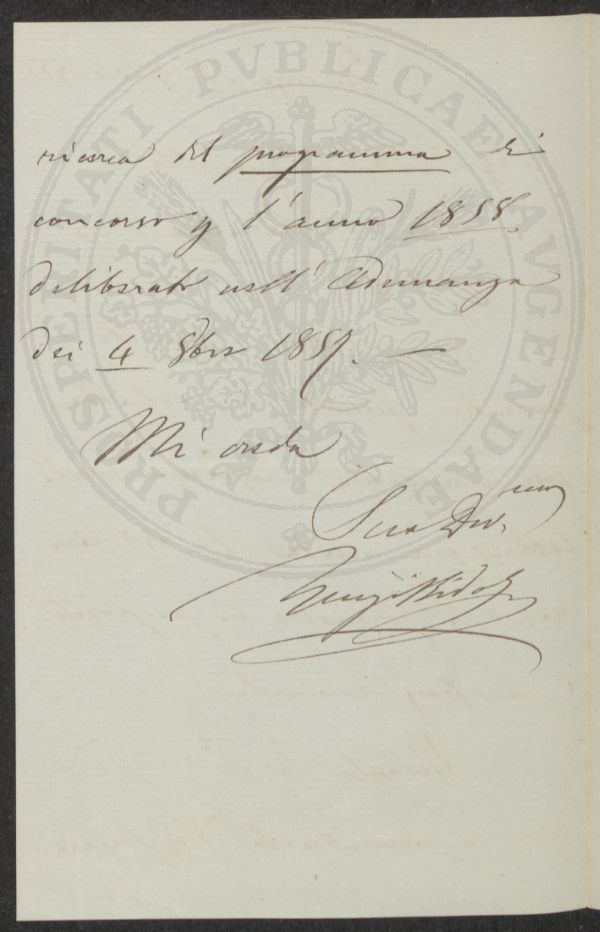 PROSPERITATI PVBLICAE AVGENDAE
ricerca del programma di
concorso p l'anno 1858.
deliberato nell'Adunanza
dei 4 8bre 1857. —
Mi creda
Suo Dev.mo
Luigi Ridolfi